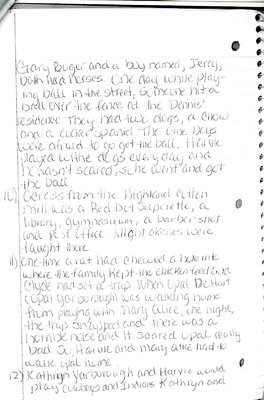 Gary Buger and a boy named, Jerry,
both had horses. One day while play-
ing ball in the street, someone hit a
ball over the fence at the Dennis'
residence. They had two dogs, a chow
and a cocker spaniel. The other boys
were afraid to go get the ball. Harvie
played with the dogs every day and
he wasn't scared, so he went and got
the ball.
10) Across from the Highland Cotten
Mill was a Red Dot Superette, a
library, gymnasium, a barber shot
and post office. Night classes were
taught there.
11) One time a rat had chewed a hole into
where the family kept the chicken feed and
Clyde had set a trap. When Opal DeHart
(Opal Yarborough) was walking home
from playing with Mary Alice, one night,
the trap snapped and there was a
horrible noise and it scared Opal really
bad. So Harvie and Mary Alice had to
walk Opal home.
12) Kathryn Yarborough and Harvie would
play cowboys and indians. Kathryn and